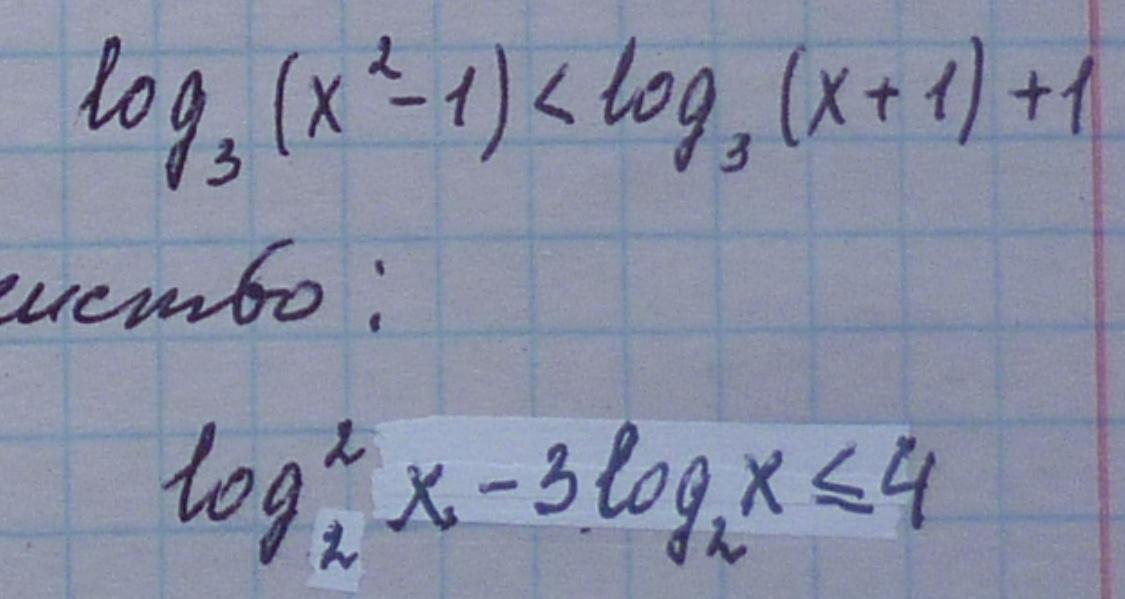 log₃ (x² - 1) < log₃ (x + 1) + 1
енство :
log₂² x - 3 log₂ x ≤ 4